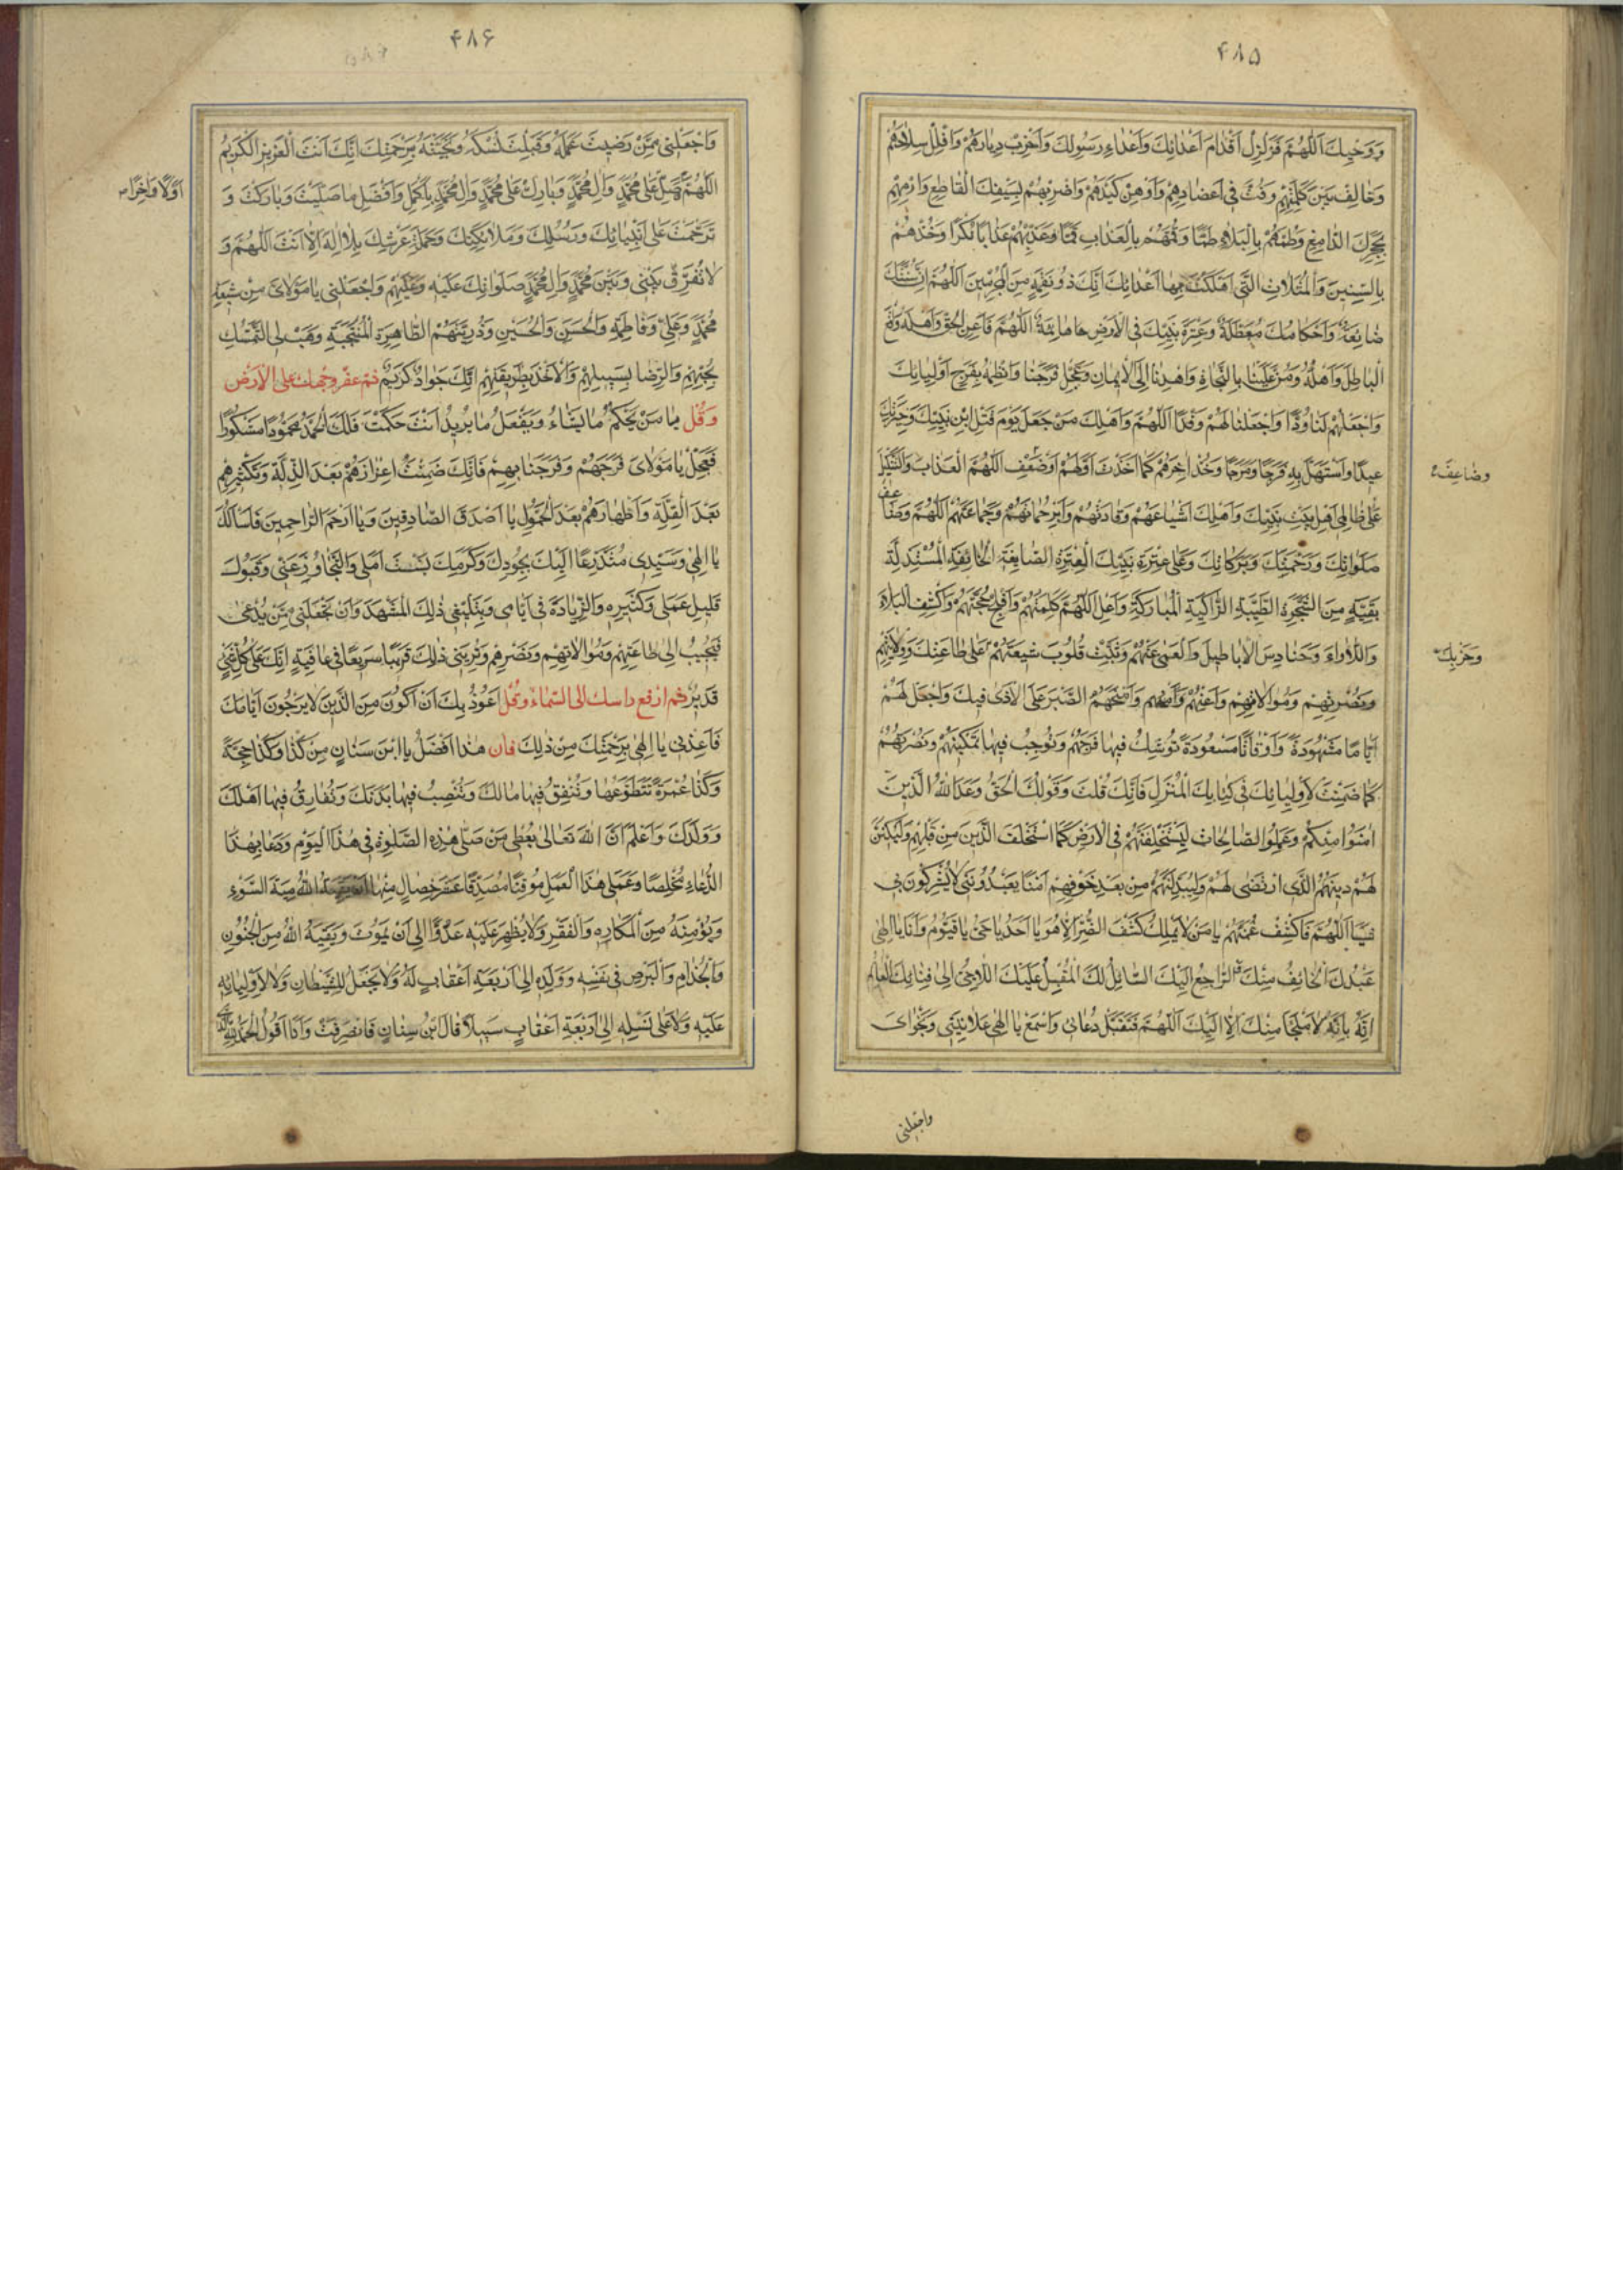 ۴۸۵
وَوَحْيِكَ اَللّٰهُمَّ فَزَلْزِلْ اَقْدامَ اَعْدائِكَ وَاَعْداءِ رَسُولِكَ وَاَخْرِبْ دِيارَهُمْ وَافْلُلْ سِلاحَهُمْ
وَخالِفْ بَيْنَ كَلِمَتِهِمْ وَفُتَّ فى اَعْضادِهِمْ وَاَوْهِنْ كَيْدَهُمْ وَاضْرِبْهُمْ بِسَيْفِكَ الْقاطِعِ وَارْمِهِمْ
بِحَجَرِكَ الدّامِغِ وَطُمَّهُمْ بِالْبَلاءِ طَمًّا وَقُمَّهُمْ بِالْعَذابِ قَمًّا وَعَذِّبْهُمْ عَذابًا نُكْرًا وَخُذْهُمْ
بِالسِّنينَ وَالْمَثُلاتِ الَّتى اَهْلَكْتَ بِها اَعْدائَكَ اِنَّكَ ذُو نَقِمَةٍ مِنَ الْمُجْرِمينَ اَللّٰهُمَّ اِنَّ سُنَّتَكَ
ضائِعَةٌ وَاَحْكامَكَ مُعَطَّلَةٌ وَعِتْرَةَ نَبِيِّكَ فِى الْاَرْضِ هائِمَةٌ اَللّٰهُمَّ فَاَعِنِ الْحَقَّ وَاَهْلَهُ وَاقْمَعِ
الْباطِلَ وَاَهْلَهُ وَمُنَّ عَلَيْنا بِالنَّجاةِ وَاهْدِنا اِلَى الْايمانِ وَعَجِّلْ فَرَجَنا وَانْظِمْهُ بِفَرَجِ اَوْلِيائِكَ
وَاجْعَلْهُمْ لَنا وُدًّا وَاجْعَلْنا لَهُمْ وَفْدًا اَللّٰهُمَّ وَاَهْلِكْ مَنْ جَعَلَ يَوْمَ قَتْلِ ابْنِ نَبِيِّكَ وَخِيَرَتِكَ
عيدًا وَاسْتَهَلَّ بِهِ فَرَحًا وَمَرَحًا وَخُذْ اٰخِرَهُمْ كَما اَخَذْتَ اَوَّلَهُمْ وَضَعِّفِ اللّٰهُمَّ الْعَذابَ وَالتَّنْكيلَ
وضاعِفْ
عَلى ظالِمى اَهْلِ بَيْتِ نَبِيِّكَ وَاَهْلِكْ اَشْياعَهُمْ وَقادَتَهُمْ وَاَبِرْ حُماتَهُمْ وَجَماعَتَهُمْ اَللّٰهُمَّ وَضاعِفْ
صَلَواتِكَ وَرَحْمَتَكَ وَبَرَكاتِكَ عَلى عِتْرَةِ نَبِيِّكَ الْعِتْرَةِ الضّائِعَةِ الْخائِفَةِ الْمُسْتَذَلَّةِ
بَقِيَّةٍ مِنَ الشَّجَرَةِ الطَّيِّبَةِ الزّاكِيَةِ الْمُبارَكَةِ وَاَعْلِ اللّٰهُمَّ كَلِمَتَهُمْ وَاَفْلِجْ حُجَّتَهُمْ وَاكْشِفِ الْبَلاءَ
وَاللَّأْواءَ وَحَنادِسَ الْاَباطيلِ وَالْعَمى عَنْهُمْ وَثَبِّتْ قُلُوبَ شيعَتِهِمْ عَلى طاعَتِكَ وَوِلايَتِهِمْ
وَحِزْبِكَ
وَنُصْرَتِهِمْ وَمُوالاتِهِمْ وَاَعِنْهُمْ وَامْنَحْهُمُ الصَّبْرَ عَلَى الْاَذى فيكَ وَاجْعَلْ لَهُمْ
اَيّامًا مَشْهُودَةً وَاَوْقاتًا مَسْعُودَةً تُوشِكُ فيها فَرَجَهُمْ وَتُوجِبُ فيها تَمْكينَهُمْ وَنَصْرَهُمْ
كَما ضَمِنْتَ لِاَوْلِيائِكَ فى كِتابِكَ الْمُنْزَلِ فَاِنَّكَ قُلْتَ وَقَوْلُكَ الْحَقُّ وَعَدَ اللهُ الَّذينَ
اٰمَنُوا مِنْكُمْ وَعَمِلُوا الصّالِحاتِ لَيَسْتَخْلِفَنَّهُمْ فِى الْاَرْضِ كَمَا اسْتَخْلَفَ الَّذينَ مِنْ قَبْلِهِمْ وَلَيُمَكِّنَنَّ
لَهُمْ دينَهُمُ الَّذِى ارْتَضى لَهُمْ وَلَيُبَدِّلَنَّهُمْ مِنْ بَعْدِ خَوْفِهِمْ اَمْنًا يَعْبُدُونَنى لا يُشْرِكُونَ بى
شَيْئًا اَللّٰهُمَّ فَاكْشِفْ غُمَّتَهُمْ يا مَنْ لا يَمْلِكُ كَشْفَ الضُّرِّ اِلّا هُوَ يا اَحَدُ يا حَىُّ يا قَيُّومُ وَاَنَا يا اِلٰهى
عَبْدُكَ الْخائِفُ مِنْكَ وَالرّاجِعُ اِلَيْكَ السّائِلُ لَكَ الْمُقْبِلُ عَلَيْكَ اللّاجِئُ اِلى فِنائِكَ الْعالِمُ
اَنَّهُ لا مَلْجَأَ مِنْكَ اِلّا اِلَيْكَ اَللّٰهُمَّ فَتَقَبَّلْ دُعائى وَاسْمَعْ يا اِلٰهى عَلانِيَتى وَنَجْواىَ
واجعلنى
۴۸۶
وَاجْعَلْنى مِمَّنْ رَضيتَ عَمَلَهُ وَقَبِلْتَ نُسُكَهُ وَنَجَّيْتَهُ بِرَحْمَتِكَ اِنَّكَ اَنْتَ الْعَزيزُ الْكَريمُ
اَللّٰهُمَّ صَلِّ عَلى مُحَمَّدٍ وَاٰلِ مُحَمَّدٍ وَبارِكْ عَلى مُحَمَّدٍ وَاٰلِ مُحَمَّدٍ بِاَكْمَلِ وَاَفْضَلِ ما صَلَّيْتَ وَبارَكْتَ وَ
اَوَّلًا وَاٰخِرًا
تَرَحَّمْتَ عَلى اَنْبِيائِكَ وَرُسُلِكَ وَمَلائِكَتِكَ وَحَمَلَةِ عَرْشِكَ بِلا اِلٰهَ اِلّا اَنْتَ اَللّٰهُمَّ وَ
لا تُفَرِّقْ بَيْنى وَبَيْنَ مُحَمَّدٍ وَاٰلِ مُحَمَّدٍ صَلَواتُكَ عَلَيْهِ وَعَلَيْهِمْ وَاجْعَلْنى يا مَوْلاىَ مِنْ شيعَةِ
مُحَمَّدٍ وَعَلِىٍّ وَفاطِمَةَ وَالْحَسَنِ وَالْحُسَيْنِ وَذُرِّيَّتِهِمُ الطّاهِرَةِ الْمُنْتَجَبَةِ وَهَبْ لِى التَّمَسُّكَ
بِحَبْلِهِمْ وَالرِّضا بِسَبيلِهِمْ وَالْاَخْذَ بِطَريقَتِهِمْ اِنَّكَ جَوادٌ كَريمٌ ثم عفّر وجهك على الارض
وَقُلْ يا مَنْ يَحْكُمُ ما يَشاءُ وَيَفْعَلُ ما يُريدُ اَنْتَ حَكَمْتَ فَلَكَ الْحَمْدُ مَحْمُودًا مَشْكُورًا
فَعَجِّلْ يا مَوْلاىَ فَرَجَهُمْ وَفَرَجَنا بِهِمْ فَاِنَّكَ ضَمِنْتَ اِعْزازَهُمْ بَعْدَ الذِّلَّةِ وَتَكْثيرَهُمْ
بَعْدَ الْقِلَّةِ وَاِظْهارَهُمْ بَعْدَ الْخُمُولِ يا اَصْدَقَ الصّادِقينَ وَيا اَرْحَمَ الرّاحِمينَ فَاَسْاَلُكَ
يا اِلٰهى وَسَيِّدى مُتَضَرِّعًا اِلَيْكَ بِجُودِكَ وَكَرَمِكَ بَسْطَ اَمَلى وَالتَّجاوُزَ عَنّى وَقَبُولَ
قَليلِ عَمَلى وَكَثيرِهِ وَالزِّيادَةَ فى اَيّامى وَتَبْليغى ذٰلِكَ الْمَشْهَدَ وَاَنْ تَجْعَلَنى مِمَّنْ يُدْعى
فَيُجيبُ اِلى طاعَتِهِمْ وَمُوالاتِهِمْ وَنَصْرِهِمْ وَتُرِيَنى ذٰلِكَ قَريبًا سَريعًا فى عافِيَةٍ اِنَّكَ عَلى كُلِّ شَىْءٍ
قَديرٌ ثم ارفع راسك الى السّماء وقل اَعُوذُ بِكَ اَنْ اَكُونَ مِنَ الَّذينَ لا يَرْجُونَ اَيّامَكَ
فَاَعِذْنى يا اِلٰهى بِرَحْمَتِكَ مِنْ ذٰلِكَ فان هٰذا اَفْضَلُ يا ابْنَ سِنانٍ مِنْ كَذا وَكَذا حِجَّةً
وَكَذا عُمْرَةً تَتَطَوَّعُها وَتُنْفِقُ فيها مالَكَ وَتُنْصِبُ فيها بَدَنَكَ وَتُفارِقُ فيها اَهْلَكَ
وَوَلَدَكَ وَاعْلَمْ اَنَّ اللهَ تَعالى يُعْطى مَنْ صَلّى هٰذِهِ الصَّلٰوةَ فى هٰذَا الْيَوْمِ وَدَعا بِهٰذَا
الدُّعاءِ مُخْلِصًا وَعَمِلَ هٰذَا الْعَمَلَ مُوقِنًا مُصَدِّقًا عَشْرَ خِصالٍ مِنْها اللهُ ميتَةَ السَّوْءِ
وَيُؤْمِنَهُ مِنَ الْمَكارِهِ وَالْفَقْرِ وَلا يُظْهِرَ عَلَيْهِ عَدُوًّا اِلى اَنْ يَمُوتَ وَيَقِيَهُ اللهُ مِنَ الْجُنُونِ
وَالْجُذامِ وَالْبَرَصِ فى نَفْسِهِ وَوَلَدِهِ اِلى اَرْبَعَةِ اَعْقابٍ لَهُ وَلا يَجْعَلَ لِلشَّيْطانِ وَلا لِاَوْلِيائِهِ
عَلَيْهِ وَلا عَلى نَسْلِهِ اِلى اَرْبَعَةِ اَعْقابٍ سَبيلًا قالَ ابْنُ سِنانٍ فَانْصَرَفْتُ وَاَنَا اَقُولُ الْحَمْدُ لِلّٰهِ الَّذى